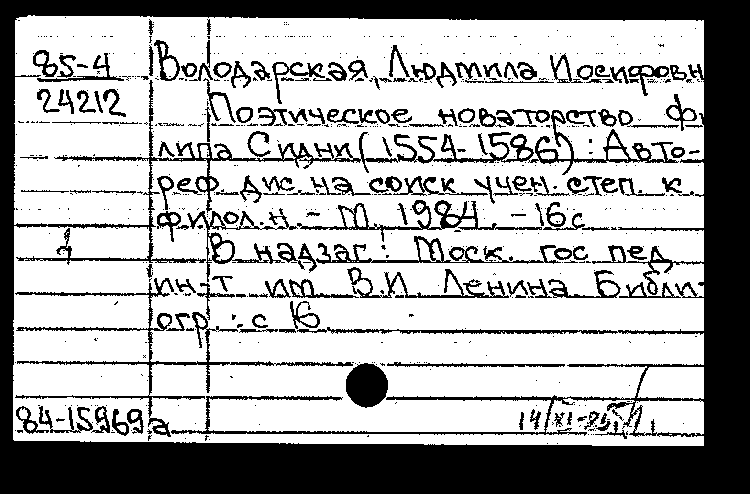 85-4
24212
Володарская, Людмила Иосифовн
Поэтическое новаторство Фи
липа Сидни (1554-1586): Авто-
реф. дис. на соиск учен. степ. к.
филол. н. - М., 1984. - 16 с.
В надзаг: Моск. гос пед
ин-т им В.И. Ленина. Библи-
огр.: с 16.
84-15969а